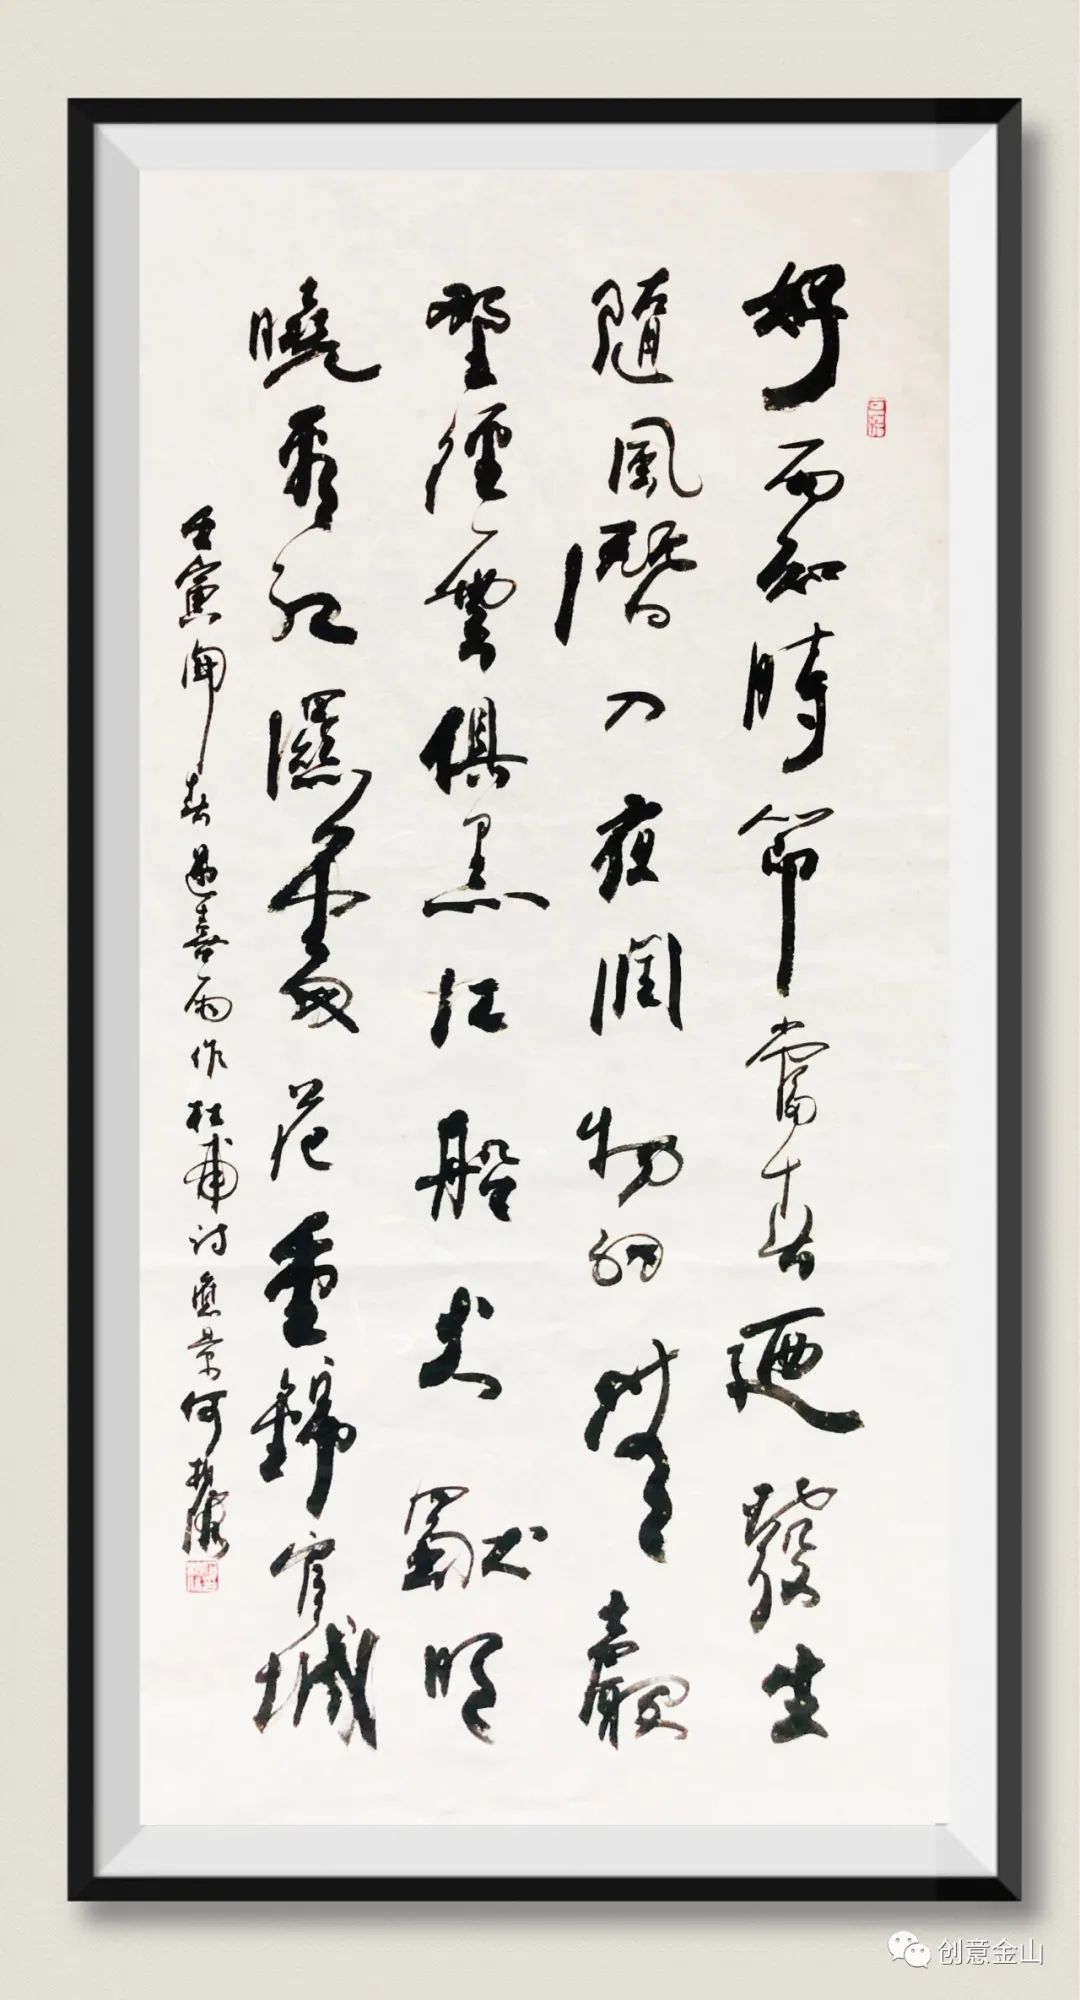 好雨知時節當春迺發生
隨風潛入夜潤物細無聲
野徑雲俱黑江船火獨明
曉看紅濕處花重錦官城
壬寅開春遇喜雨作杜甫詩應景何
创意金山